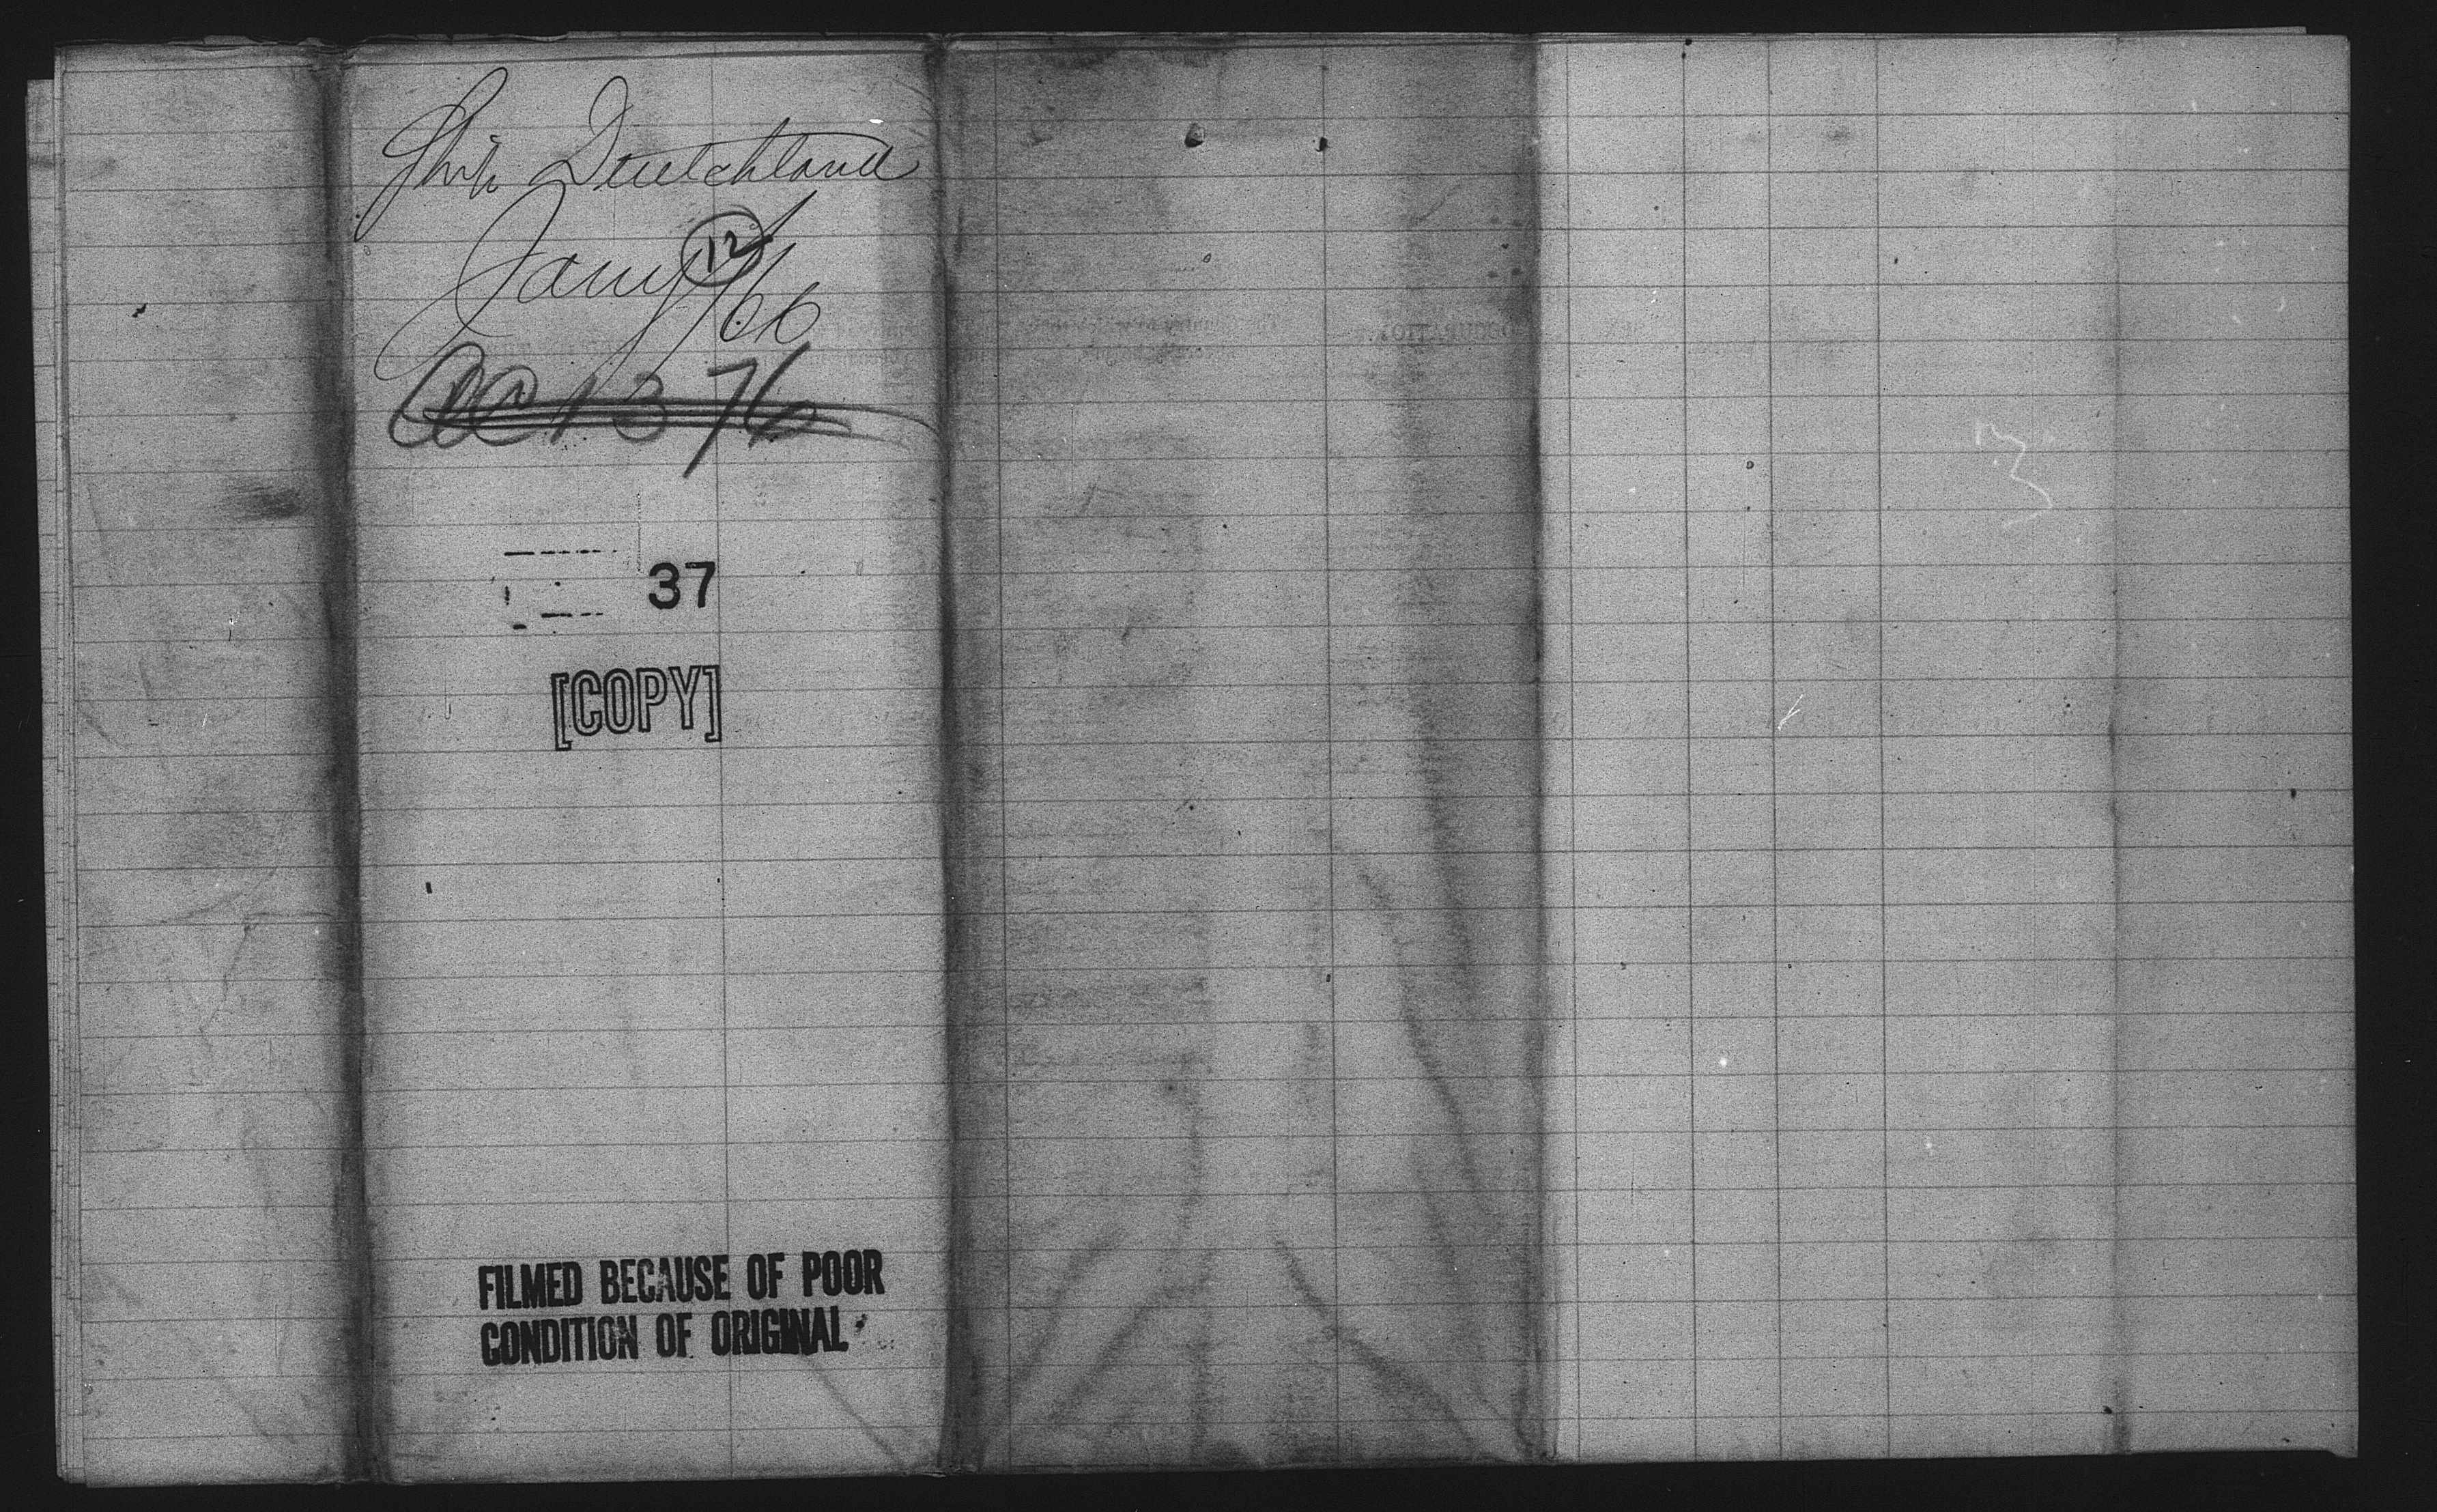 Ship Deutchland
Jany 12/66
Dec 13 76
37
[COPY]
FILMED BECAUSE OF POOR
CONDITION OF ORIGINAL
OCCUPATION.